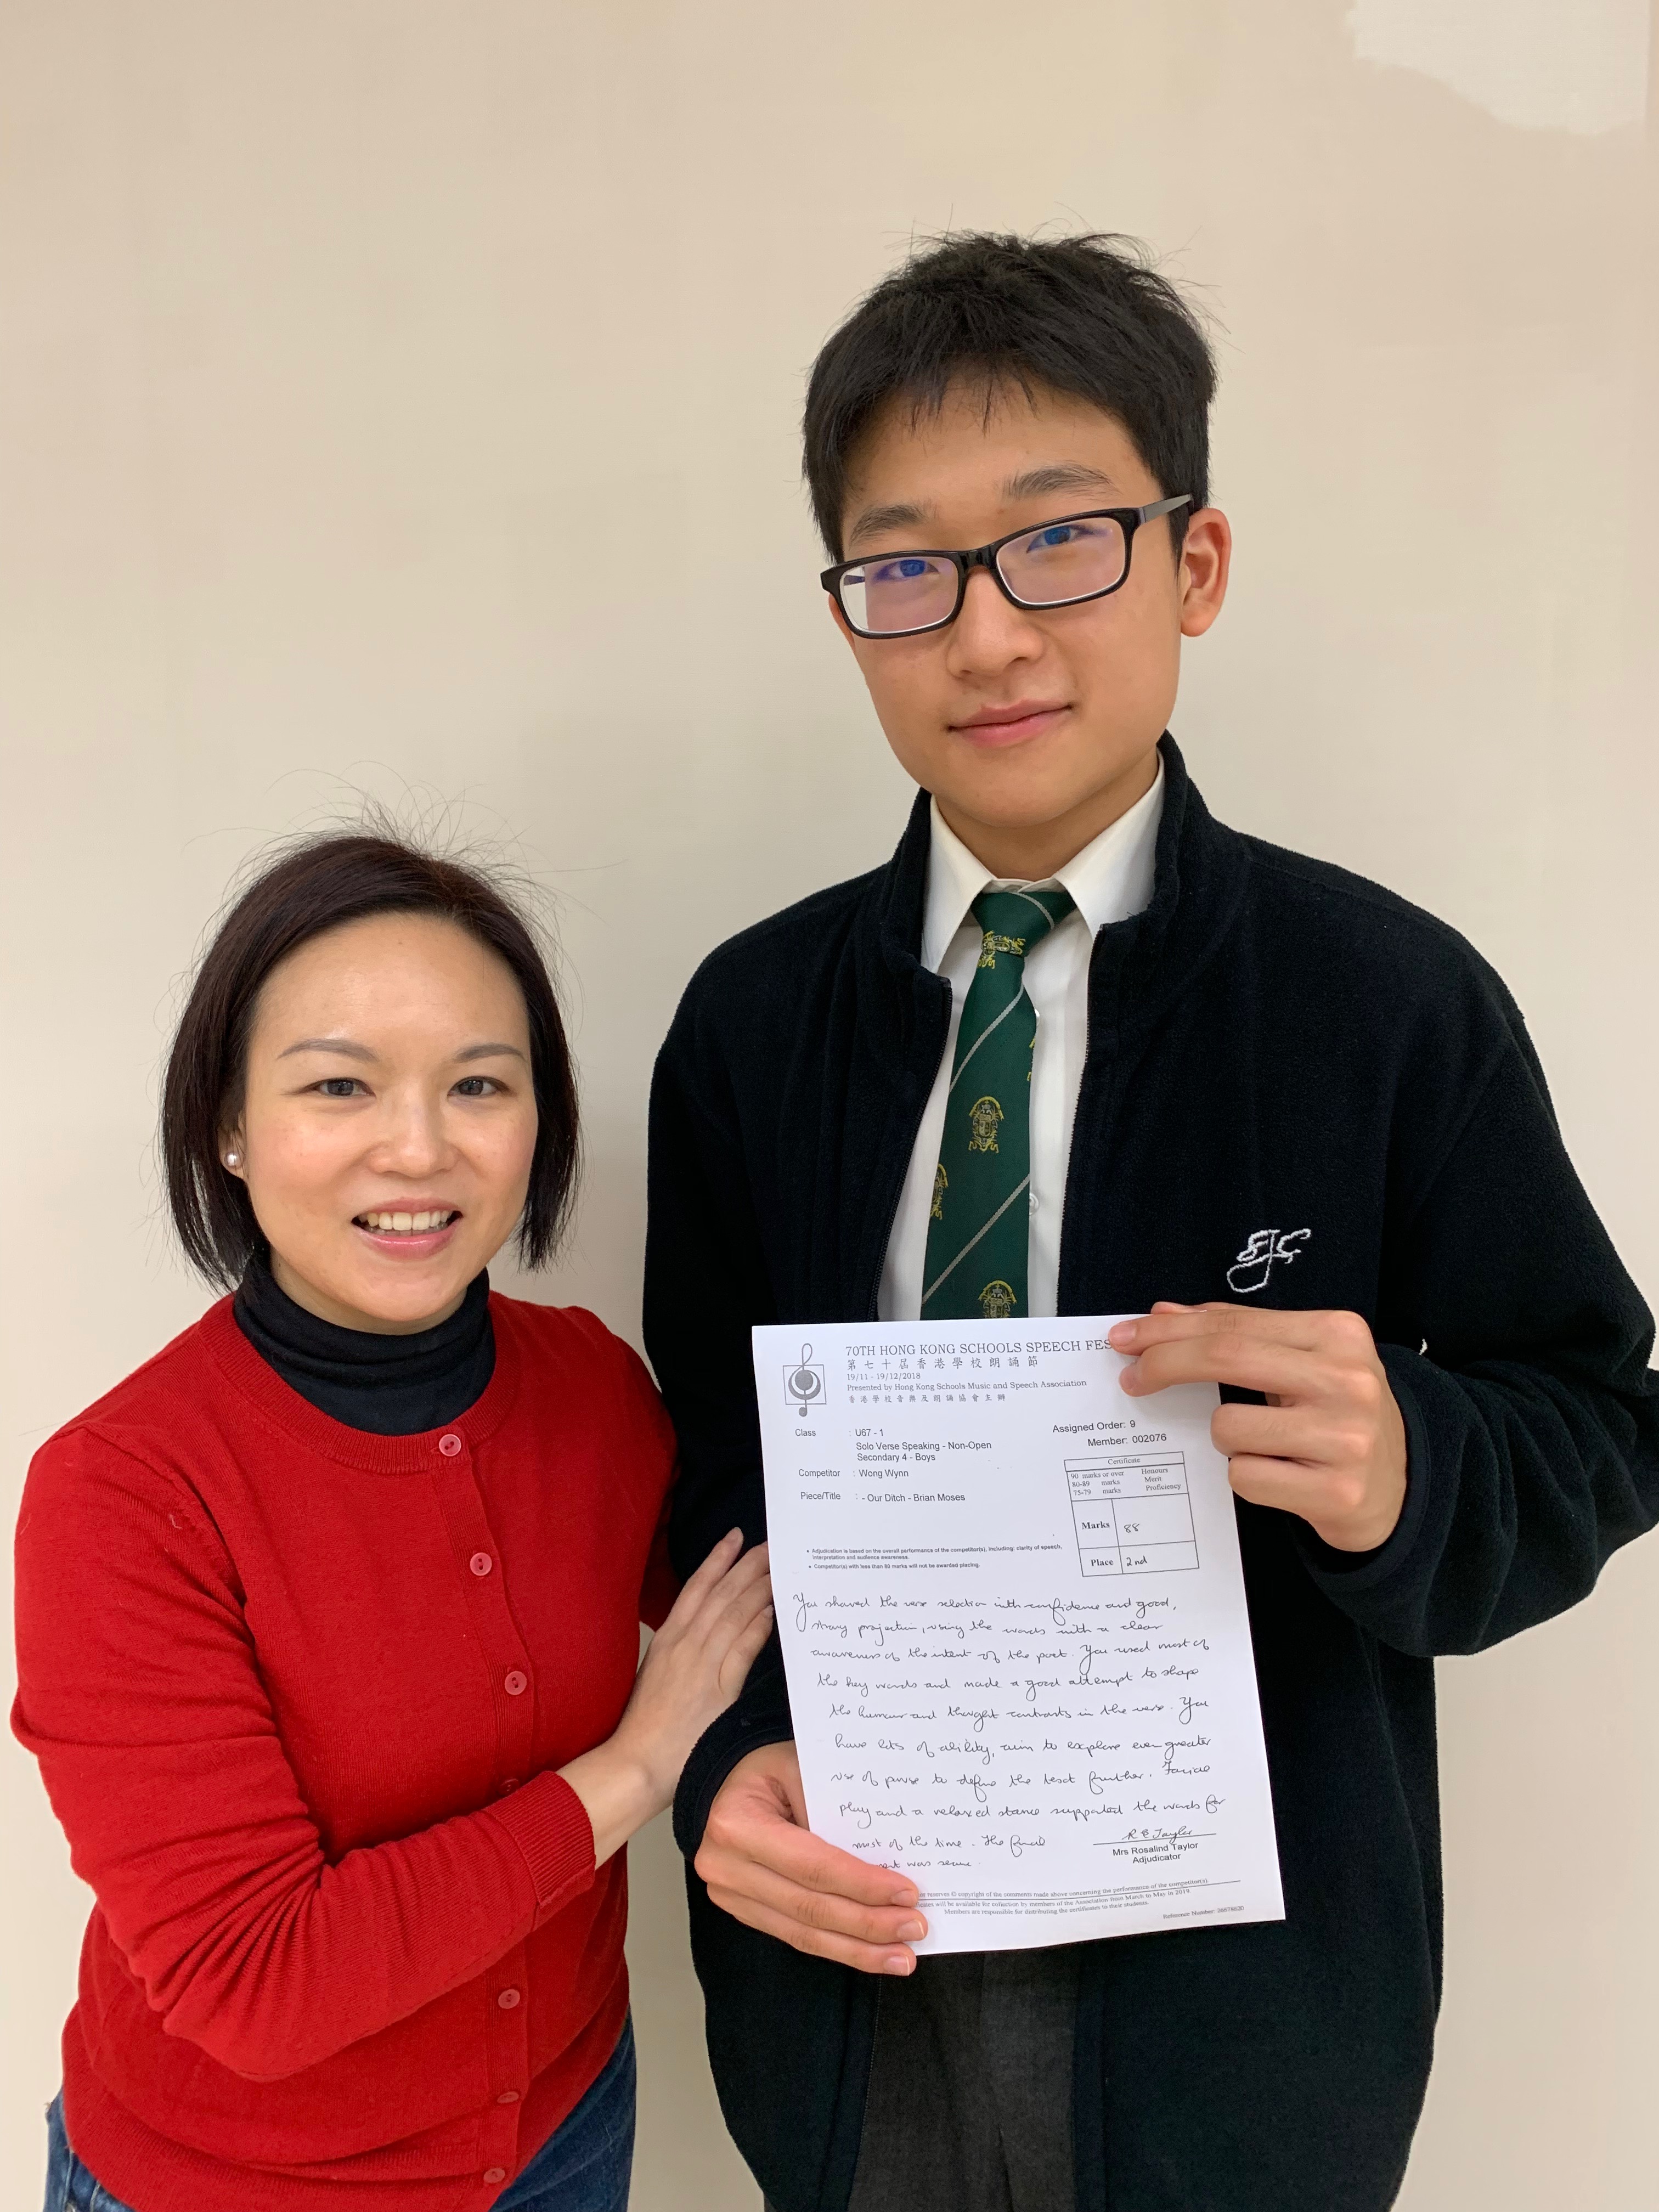 SJC
70TH HONG KONG SCHOOLS SPEECH FES
第七十屆香港學校朗誦節
19/11 - 19/12/2018
Presented by Hong Kong Schools Music and Speech Association
香港學校音樂及朗誦協會主辦
Class : U67 - 1
Solo Verse Speaking - Non-Open
Secondary 4 - Boys
Competitor : Wong Wynn
Piece/Title : - Our Ditch - Brian Moses
Assigned Order: 9
Member: 002076
Certificate
90 marks or over Honours
80-89 marks Merit
75-79 marks Proficiency
Marks 88
Place 2nd
• Adjudication is based on the overall performance of the competitor(s), including: clarity of speech,
interpretation and audience awareness.
• Competitor(s) with less than 80 marks will not be awarded placing.
You shared the verse selection with confidence and good,
strong projection, using the words with a clear
awareness of the intent of the poet. You used most of
the key words and made a good attempt to shape
the humour and thought contrasts in the verse. You
have lots of ability, aim to explore even greater
use of pause to define the text further. Facial
play and a relaxed stance supported the words for
most of the time. The final
was secure.
R E Taylor
Mrs Rosalind Taylor
Adjudicator
reserves © copyright of the comments made above concerning the performance of the competitor(s).
will be available for collection by members of the Association from March to May in 2019.
Members are responsible for distributing the certificates to their students.
Reference Number: